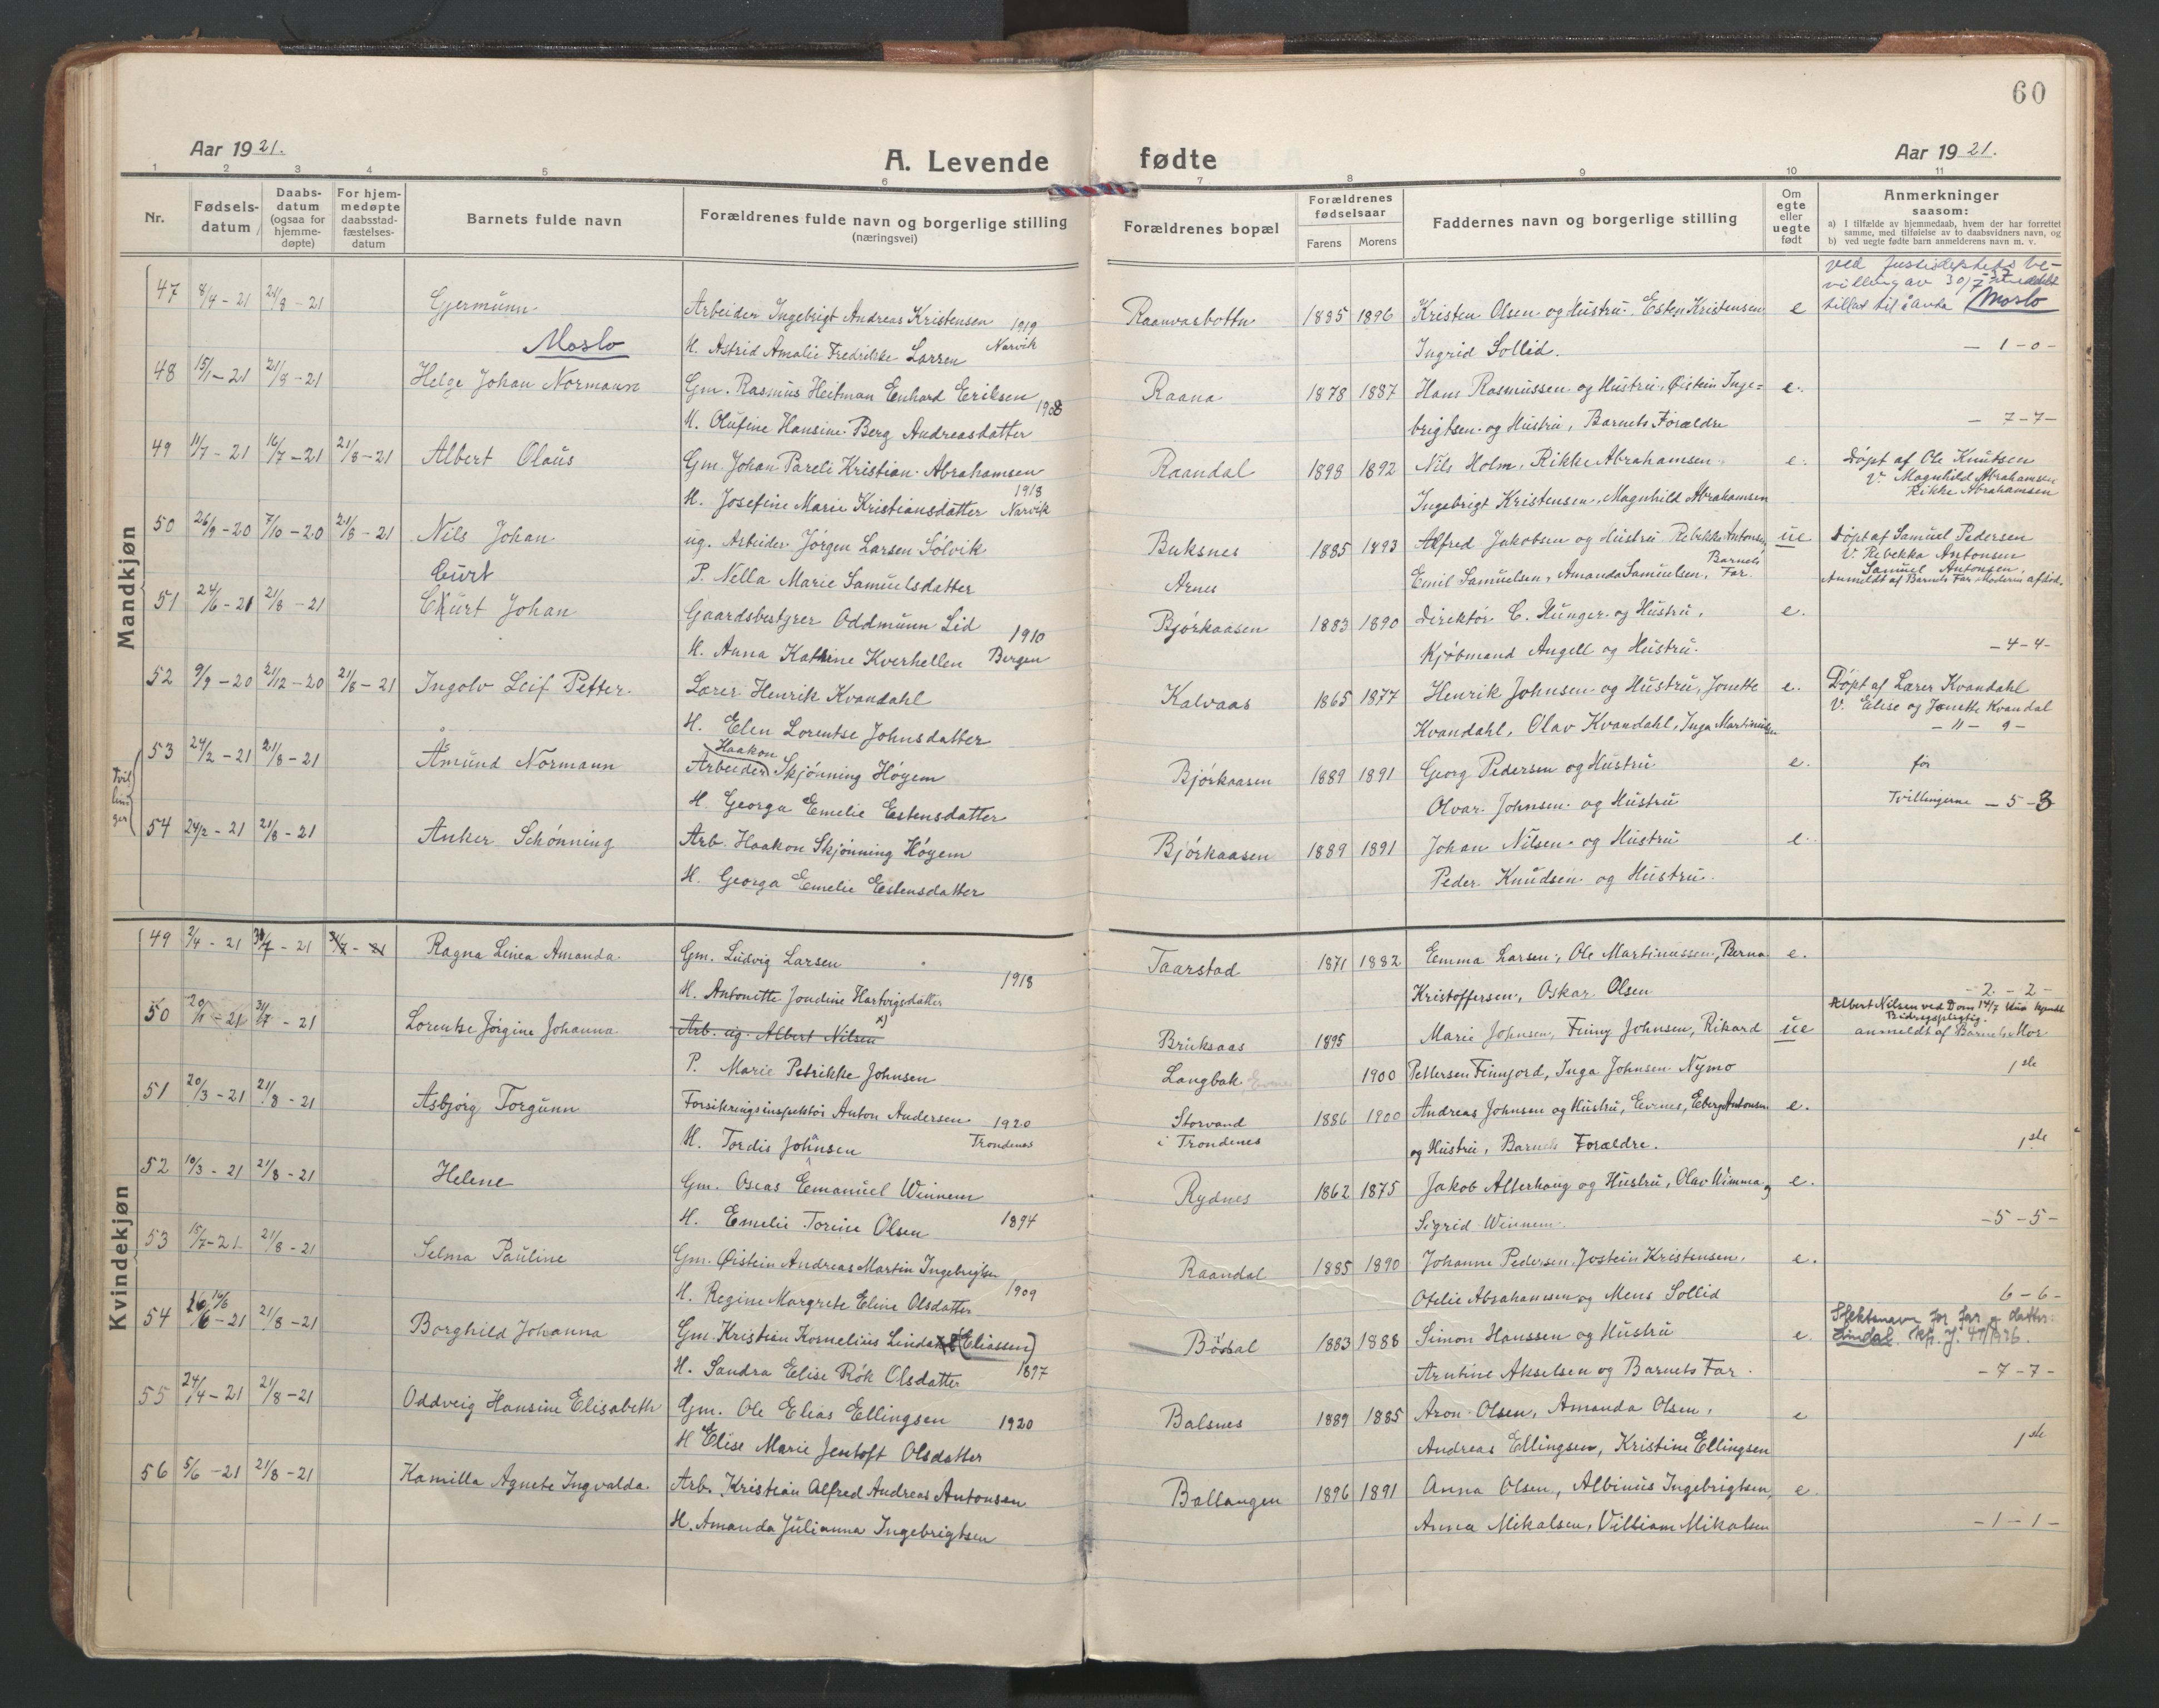 60
Aar 1921.
A. Levende fødte
Aar 1921.
1 2 3 4 5 6 7 8 9 10 11
Nr.
Fødsels-datum
Daabs-datum (ogsaa for hjemme-døpte)
For hjem-medøpte daabsstad-fæstelses-datum
Barnets fulde navn
Forældrenes fulde navn og borgerlige stilling (næringsvei)
Forældrenes bopæl
Forældrenes fødselsaar
Farens Morens
Faddernes navn og borgerlige stilling
Om egte eller uegte født
Anmerkninger saasom:
a) I tilfælde av hjemmedaab, hvem der har forrettet samme, med tilføielse av to daabsvidners navn, og
b) ved uegte fødte barn anmelderens navn m. v.
Mandkjøn
47 8/4-21 21/8-21 Germunn Arbeider Ingebrigt Andreas Kristensen 1919 Raanvasbottn 1895 1896 Kristen Olsen og Hustru, Esten Kristensen e
ved Justisdeptets be-
villing av 30/7-37
tillat til å anta Moslo
Moslo H. Astrid Amalie Fredrikke Larsen Narvik Ingrid Sollid. - 1 - 0 -
48 15/1-21 21/8-21 Helge Johan Normann Gm. Rasmus Heitman Enhard Eriksen 1908 Raana 1878 1887 Hans Rasmussen og Hustru, Øistein Inge= e.
H. Olufine Hansine Berg Andreasdatter brigtsen og Hustru, Barnets Forældre - 7 - 7 -
49 11/7-21 16/7-21 21/8-21 Albert Olaus Gm. Johan Pareli Kristian Abrahamsen Raandal 1898 1892 Nils Holm, Rikke Abrahamsen e. Døpt af Ole Knutsen
V. Magnhild Abrahamsen
Rikke Abrahamsen
H. Josefine Marie Kristiansdatter 1918 Narvik Ingebrigt Kristensen, Magnhild Abrahamsen
50 26/9-20 7/10-20 21/8-21 Nils Johan ug. Arbeider Jørgen Larsen Sølvik Buksnes 1885 1893 Alfred Jakobsen og Hustru Rebekka Antonsen, ue Døpt af Samuel Pedersen
V. Rebekka Antonsen
Samuel Antonsen.
Anmeldt af Barnets Far, Moderen afdød.
P. Nella Marie Samuelsdatter Arnes Emil Samuelsen, Amanda Samuelsen, Barnets Far.
Curt
51 24/6-21 21/8-21 Ckurt Johan Gaardsbestyrer Oddmunn Lid 1910 Bjørkaasen 1883 1890 Direktør C. Hunger og Hustru, e.
H. Anna Kathrine Kverhellen Bergen Kjøbmand Angell og Hustru. - 4 - 4 -
52 9/9-20 21/12-20 21/8-21 Ingolv Leif Petter. Lærer Henrik Kvandahl Kalvaas 1865 1877 Henrik Johnsen og Hustru, Jonette e. Døpt af Lærer Kvandahl
V. Elise og Jonette Kvandal
H. Elen Lorentse Johnsdatter Kvandahl, Olav Kvandahl, Inga Martinusen - 11 - 9 -
Tvillinger
53 24/2-21 21/8-21 Åmund Normann Arbeider Haakon Skjønning Høyem Bjørkaasen 1889 1891 Georg Pedersen og Hustru e. for
H. Georga Emelie Estensdatter Olvar Johnsen og Hustru Tvillingerne - 5 - 3
54 24/2-21 21/8-21 Anker Schønning Arb. Haakon Skjønning Høyem Bjørkaasen 1889 1891 Johan Nilsen og Hustru e.
H. Georga Emelie Estensdatter Peder Knudsen og Hustru.
Kvindekjøn
49 2/4-21 31/7-21 31/7-21 Ragna Linea Amanda Gm. Ludvig Larsen 1918 Taarstad 1871 1882 Emma Larsen, Ole Martinussen, Berna e.
H. Antonette Jondine Hartvigsdatter Kristoffersen, Oskar Olsen - 2 - 2 -
50 20/1-21 31/7-21 Lorentse Jørgine Johanna Arb. ug. Albert Nilsen x) Bruksaas 1895 Marie Johnsen, Finny Johnsen, Rikard ue
Albert Nilsen ved Dom 14/7
Bidragspligtig.
anmeldt af Barnets Mor
P. Marie Petrikke Johnsen Langbak 1900 Pettersen Finnjord, Inga Johnsen Nymo 1ste
51 20/3-21 21/8-21 Asbjørg Torgunn Forsikringsinspektør Anton Andersen 1920 Storvand 1886 1900 Andreas Johnsen og Hustru, Evenes, Eberg Antonsen e.
H. Tordis Johnsen Trondenes i Trondenes og Hustru, Barnets Forældre. 1ste
52 10/3-21 21/8-21 Helene Gm. Oscar Emanuel Winnem Rydnes 1862 1875 Jakob Alterhaug og Hustru, Olav Wimma og e.
H. Emelie Torine Olsen 1894 Sigrid Winnem. - 5 - 5 -
53 15/7-21 21/8-21 Selma Pauline Gm. Øistein Andreas Martin Ingebrigtsen Raandal 1885 1890 Johanne Pedersen, Jostein Kristensen, e.
H. Regine Margrete Eline Olsdatter 1909 Otelie Abrahamsen og Mens Sollid 6 - 6 -
54 16/6-21 21/8-21 Borghild Johanna Gm. Kristian Kornelius Lindal (Eliassen) Bødal 1883 1888 Simon Hanssen og Hustru e.
Slektsnavn for far og datter
Lindal
H. Sandra Elise Røk Olsdatter 1897 Arntine Akselsen og Barnets Far. - 7 - 7 -
55 24/4-21 21/8-21 Oddveig Hansine Elisabeth Gm. Ole Elias Ellingsen 1920 Balsnes 1889 1885 Aron Olsen, Amanda Olsen, e
H Elise Marie Jentoft Olsdatter Andreas Ellingsen, Kristine Ellingsen 1ste
56 5/6-21 21/8-21 Kamilla Agnete Ingvalda. Arb. Kristian Alfred Andreas Antonsen Ballangen 1896 1891 Anna Olsen, Albinus Ingebrigtsen, e.
H. Amanda Julianna Ingebrigtsen Anna Mikalsen, Villiam Mikalsen - 1 - 1 -